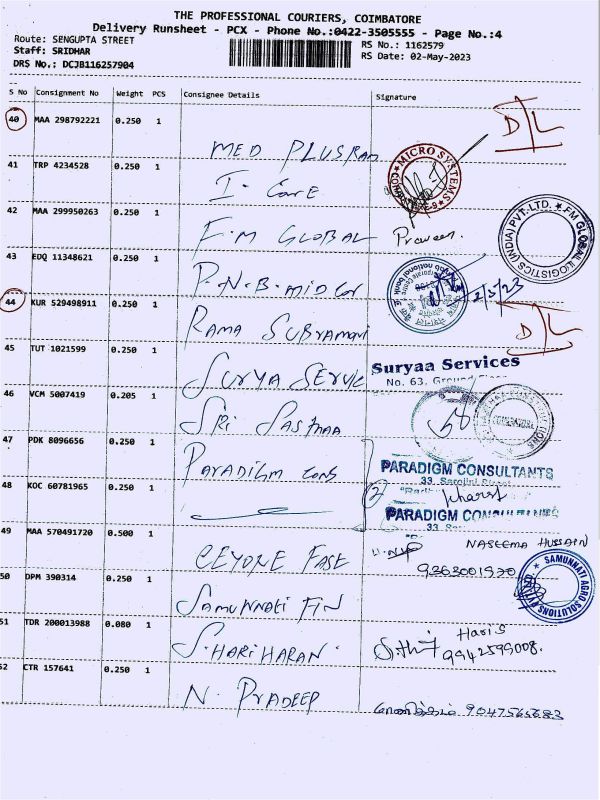 THE PROFESSIONAL COURIERS, COIMBATORE
Delivery Runsheet - PCX - Phone No.:0422-3505555 - Page No.:4
Route: SENGUPTA STREET
Staff: SRIDHAR
DRS No.: DCJB116257904
RS No.: 1162579
RS Date: 02-May-2023
S No Consignment No Weight PCS Consignee Details Signature
40 MAA 298792221 0.250 1 MED PLUSRAM D/L
MICRO SYSTEMS
41 TRP 4234528 0.250 1 I-Care
42 MAA 299950263 0.250 1 F.M GLOBAL Praveen.
FM GLOBAL LOGISTICS (INDIA) PVT. LTD.
43 EDQ 11348621 0.250 1 P.N.B-midCor 2/5/23
44 KUR 529498911 0.250 1 RAMA SUBRAMANI D/L
45 TUT 1021599 0.250 1 SURYA SERVIC
Suryaa Services
No. 63, Ground
46 VCM 5007419 0.205 1 SRI SASTHAA
47 PDK 8096656 0.250 1 PARADIGM CONS
PARADIGM CONSULTANTS
33, Sarojini Street
2
48 KOC 60781965 0.250 1
PARADIGM CONSULTANTS
33
49 MAA 570491720 0.500 1 CEYONE FASE NASEEMA HUSSAIN
9363001970
50 DPM 390314 0.250 1 SAMUNNATI FIN
SAMUNNATI AGRO SOLUTIONS
51 TDR 200013988 0.080 1 S.HARIHARAN. Haris
9942599008.
52 CTR 157641 0.250 1 N. PRADEEP 9047565683